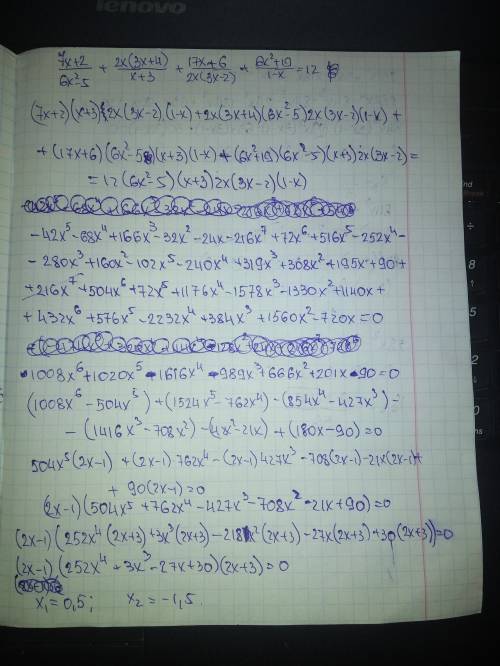 lenovo
(7x+2)/(6x²-5) + 2x(3x+4)/(x+3) + (17x+6)/(2x(3x-2)) + (6x²+19)/(1-x) = 12
(7x+2)(x+3)2x(3x-2)(1-x)+2x(3x+4)(6x²-5)2x(3x-2)(1-x)+
+(17x+6)(6x²-5)(x+3)(1-x)+(6x²+19)(6x²-5)(x+3)2x(3x-2)=
=12(6x²-5)(x+3)2x(3x-2)(1-x)
-42x⁵-68x⁴+166x³-32x²-24x-216x⁷+72x⁶+516x⁵-252x⁴-
-280x³+160x²-102x⁵-240x⁴+319x³+308x²+195x+90+
+216x⁷+504x⁶+72x⁵+1176x⁴-1578x³-1330x²+1140x+
+432x⁶+576x⁵-2232x⁴+384x³+1560x²-720x=0
1008x⁶+1020x⁵-1616x⁴-989x³+666x²+201x-90=0
(1008x⁶-504x⁵)+(1524x⁵-762x⁴)-(854x⁴-427x³)-
-(1416x³-708x²)-(42x²-21x)+(180x-90)=0
504x⁵(2x-1)+(2x-1)762x⁴-(2x-1)427x³-708(2x-1)-21x(2x-1)+
+90(2x-1)=0
(2x-1)(504x⁵+762x⁴-427x³-708x²-21x+90)=0
(2x-1)(252x⁴(2x+3)+3x³(2x+3)-218x²(2x+3)-27x(2x+3)+30(2x+3))=0
(2x-1)(252x⁴+3x³-27x+30)(2x+3)=0
x₁=0,5; x₂=-1,5.